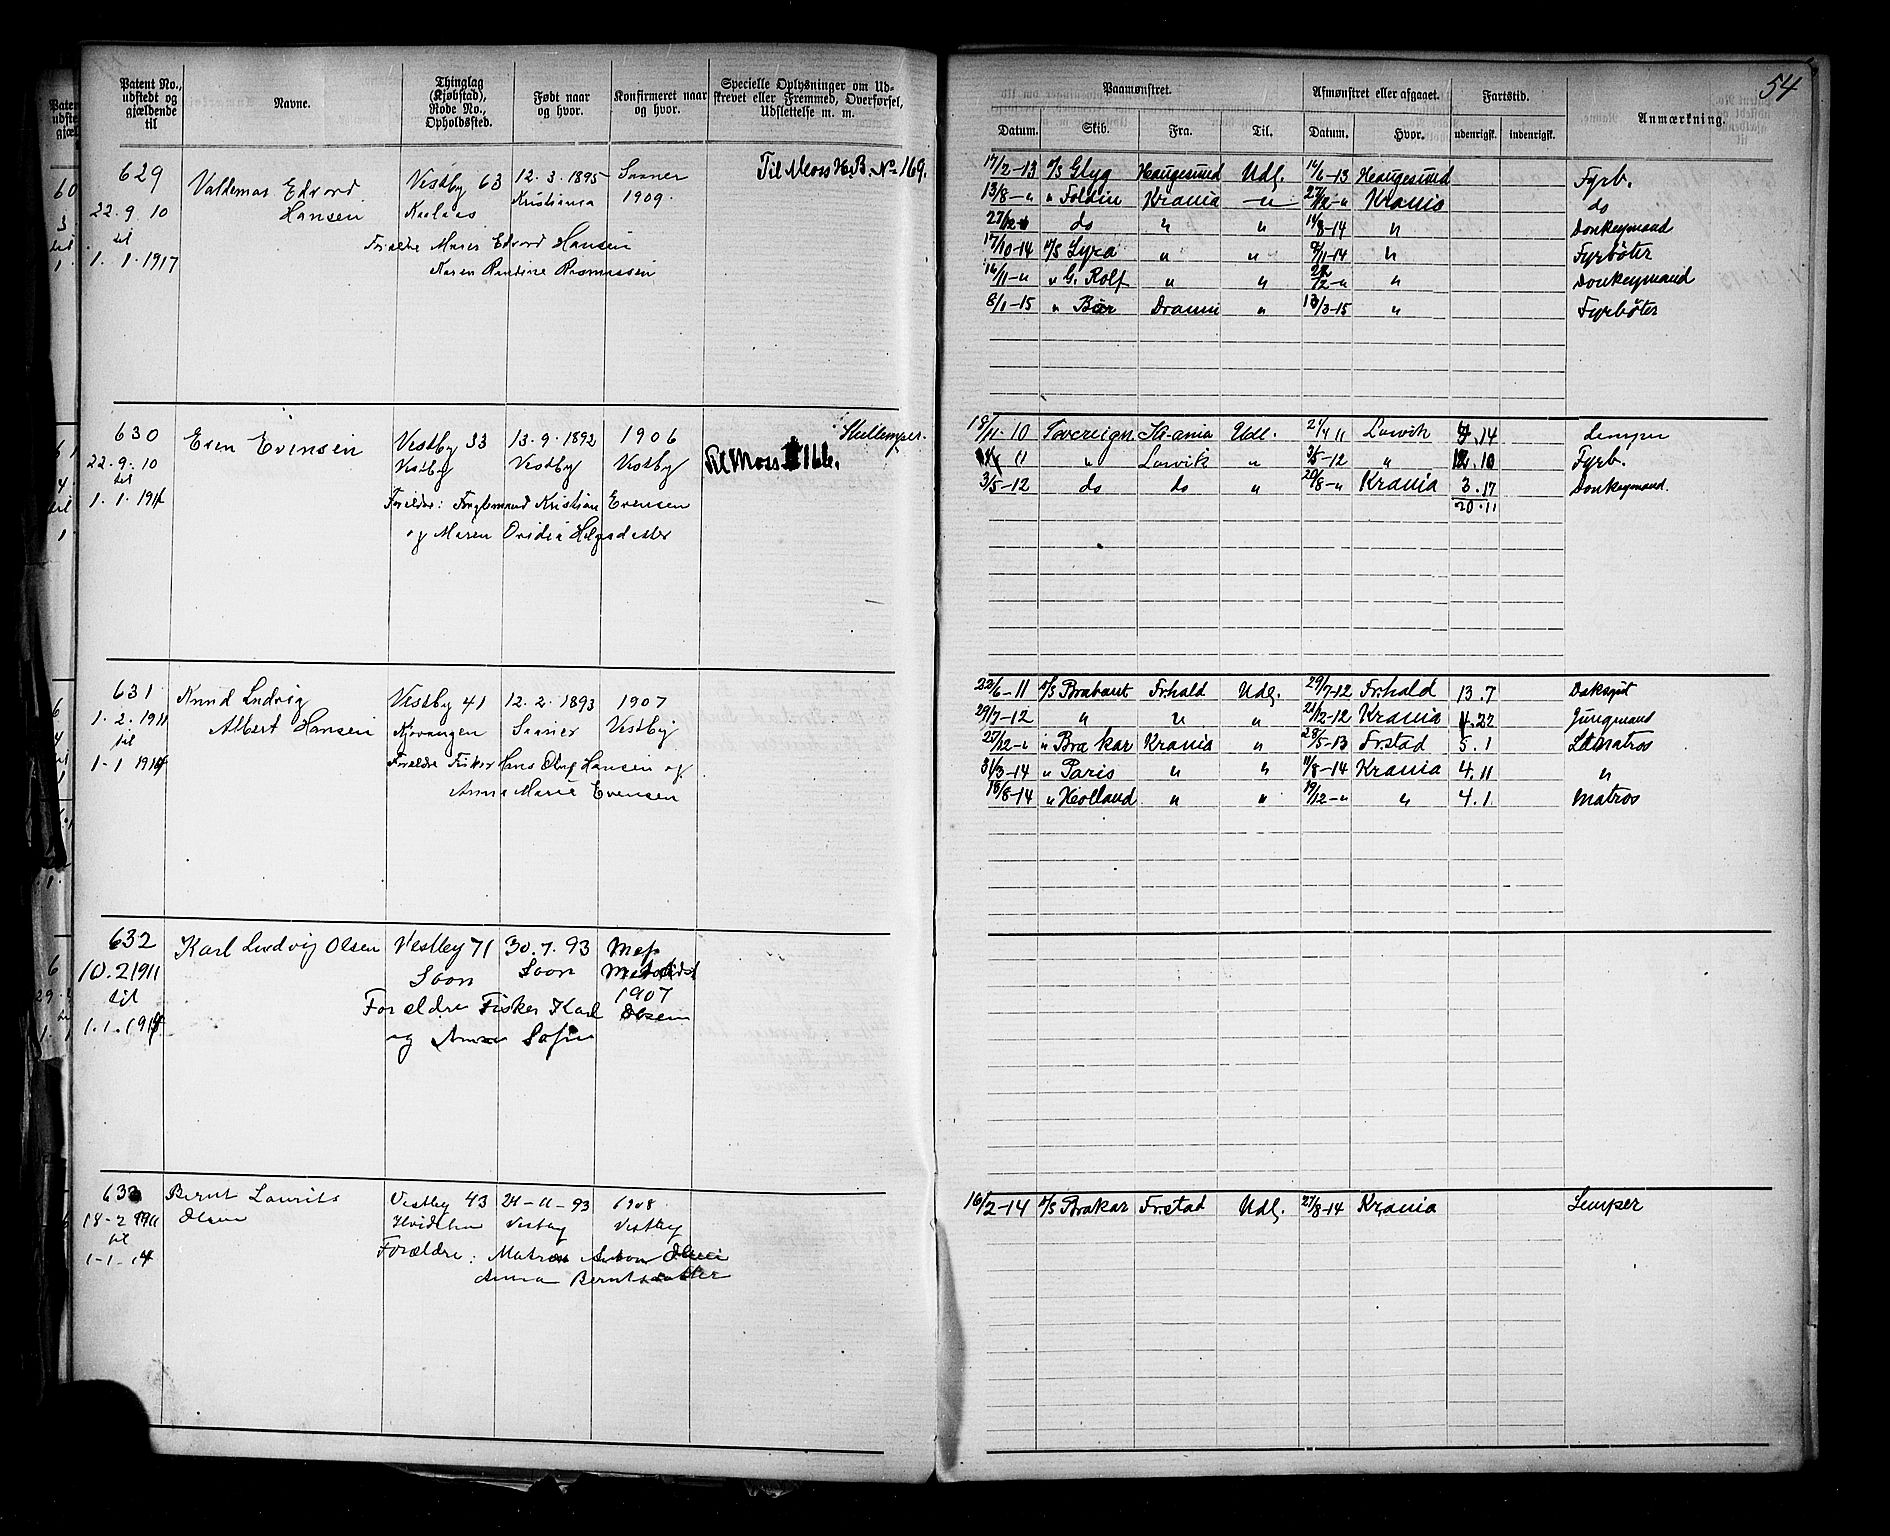 54
Patent No., udstedt og gjældende til
Navne.
Thinglag (Kjøbstad), Rode No., Opholdssted.
Født naar og hvor.
Konfirmeret naar og hvor.
Specielle Oplysninger om Udskrevet eller Fremmed, Overførsel, Udslettelse m. m.
Paamønstret.
Afmønstret eller afgaaet.
Fartstid.
Anmærkning.
Datum. Skib. Fra. Til. Datum. Hvor. udenrigsk. indenrigsk.
629 Valdemar Edvard Vestby 63 12.3.1895 Saaner Til Moss H.B. No 169.
22.9.10 Hansen Kristiania 1909.
til Forældre Edvard Hansen
1.1.1917 Karen Rasmussen
17/2-13 D/S Glyg Haugesund Udl. 14/6-13 Haugesund Fyrb.
13/8-" " Foldin Krania -"- Krania do
27/12 do " " 14/8-14 " Donkeymand
17/10-14 D/S Lyra " " /11-14 " Fyrbøter
16/11-" " G. Rolf " " " Donkeymand
8/1-15 " Bør Dramm " 13/3-15 " Fyrbøter
630 Even Evensen Vestby 33 13.9.1892 1906 Skullemper.
22.9.10 Vestby Vestby Vestby Til Moss 166.
til Forældre: Kristian Evensen
1.1.191 og Maren Ovidia Helgesdatter
18/11-10 Sovereign Krania Udl. 2/4 11 Larvik .14 Lemper
11 " Larvik " 3/5-12 " 12.10 Fyrb.
3/5-12 do do " 20/8-" Krania 3.17 Donkeymand.
20.11
631 Knud Ludvig Vestby 41 12.2.1893 1907
1.2.1911 Albert Hansen Saaner Vestby
til Forældre Fisker Hans Hansen og
1-1 1914 Anna Marie Evensen
22/6-11 D/S Brabant Frhald Udl. 29/7-12 Frhald 13.7 Dæksgut
29/7-12 " " " 21/12-12 Krania 4.22 Jungmand
27/12-" " Brakar Krania " 28/5-13 Frstad 5.1 Matros
31/3-14 " Paris " " 11/8-14 Krania 4.11 "
18/8-14 " Holland " " 19/12-" " 4.1 Matros
632 Karl Ludvig Olsen Vestby 71 30.7.93
10.2 1911 Soon Soon Metodist
til Forældre Fisker Karl Olsen 1907
1.1.1914 og Anna Sofie
633 Bernt Laurits Vestby 43 24-11-93 1908
18-2 1911 Olsen Hvidsten Vestby Vestby
til Forældre: Matros Anton Olsen
1-1-14 Anna Berntsdatter
16/2-14 D/S Brakar Frstad Udl. 27/8-14 Krania Lemper